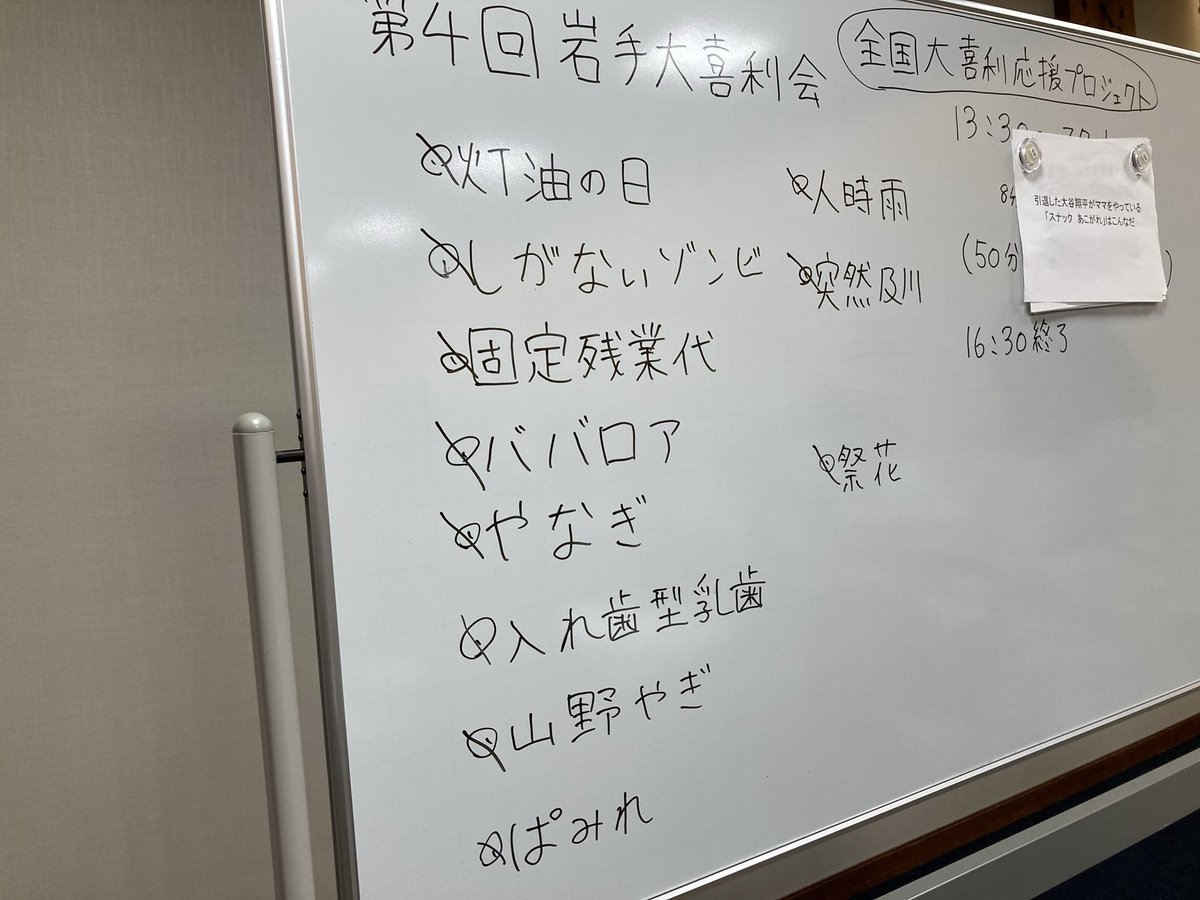 第4回 岩手大喜利会
全国大喜利応援プロジェクト
灯油の日
しがないゾンビ
固定残業代
ババロア
やなぎ
入れ歯型乳歯
山野やぎ
ぱみれ
人時雨
突然及川
祭花
13:30
(50分
16:30終了
引退した大谷翔平がママをやっている
「スナック あこがれ」はこんなだ